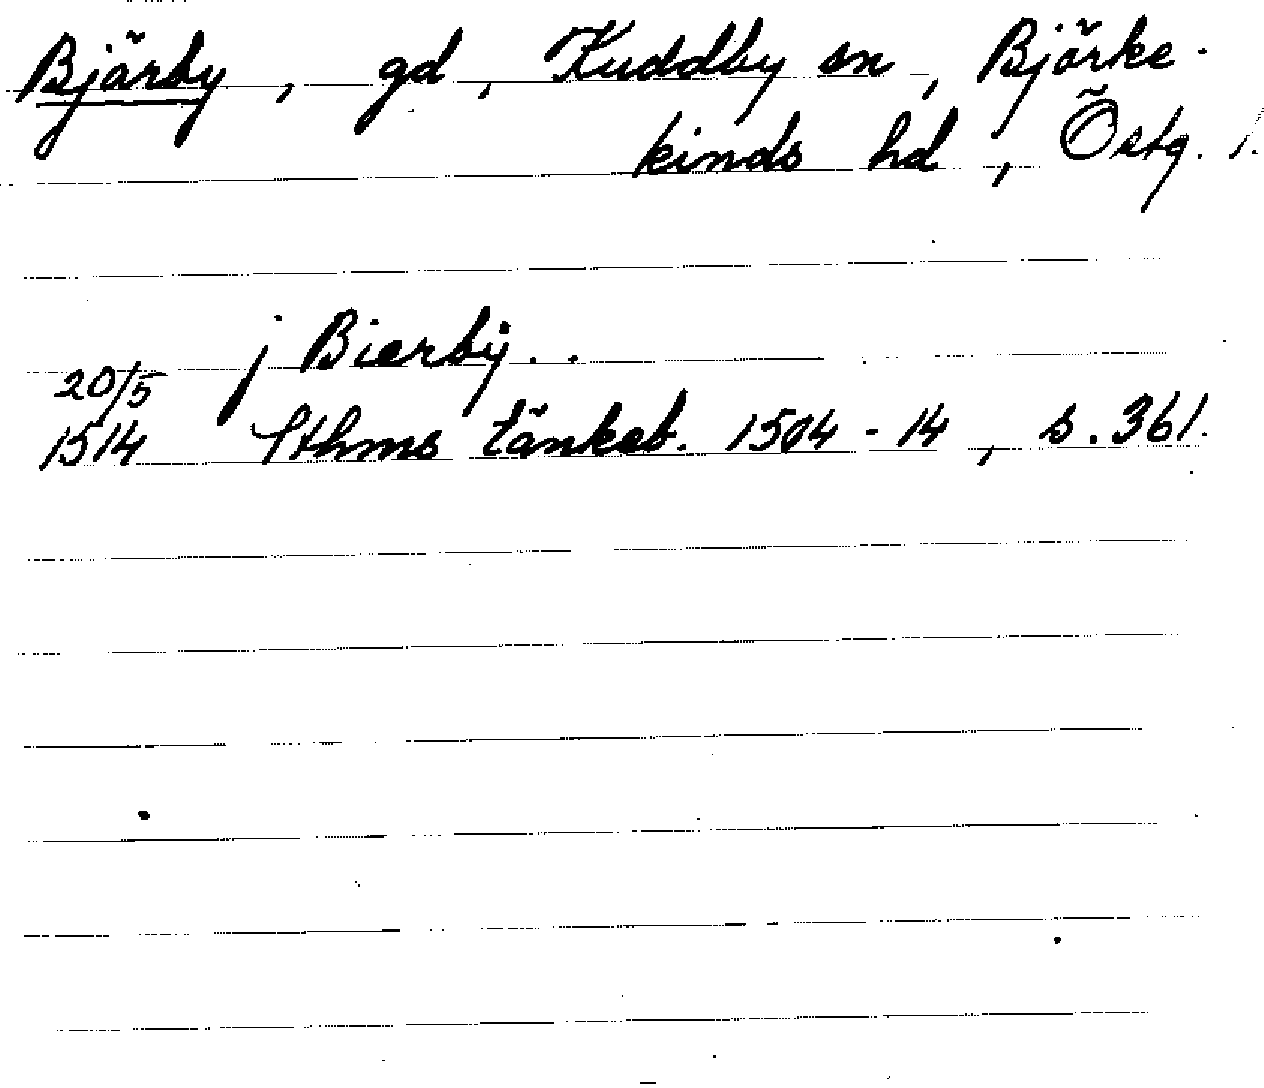 Bjärby, gd, Kuddby sn, Björke-
kinds hd, Östg. l.
j Bierbÿ..
20/5
1514 Sthms tänkeb. 1504-14, s. 361.